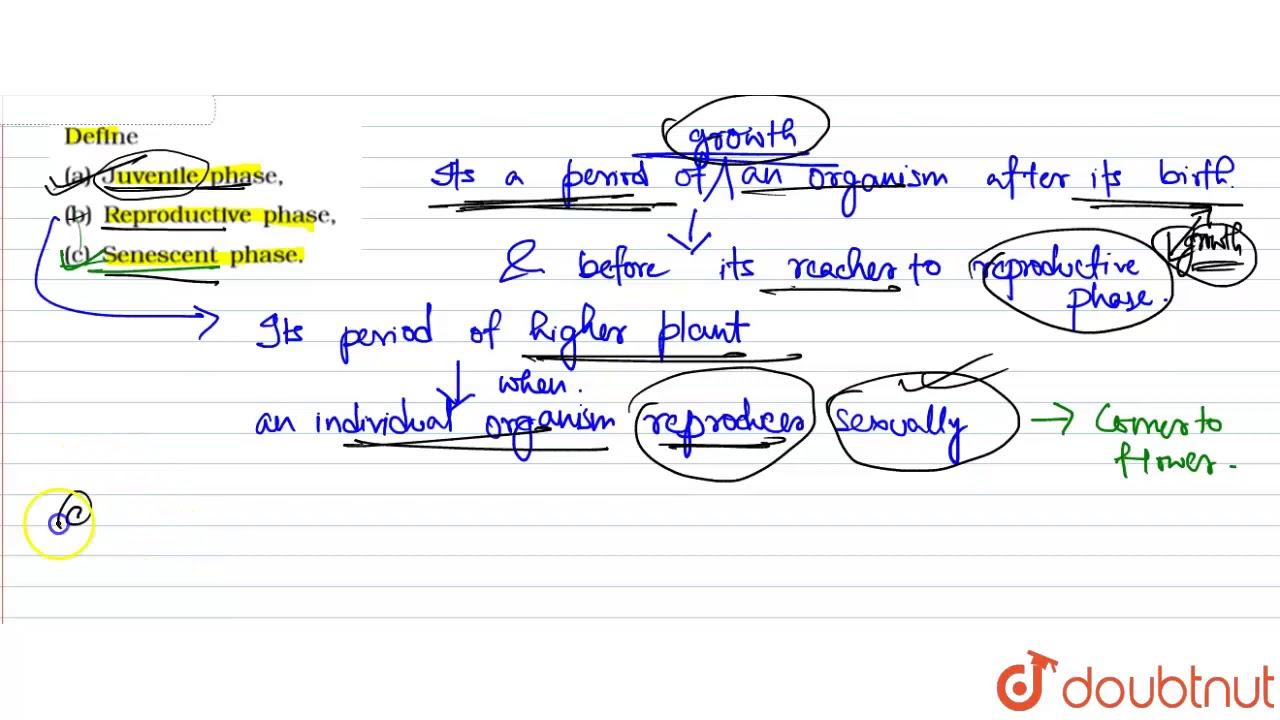 Define
(a) Juvenile phase,
(b) Reproductive phase,
(c) Senescent phase.
growth
Its a period of an organism after its birth.
growth
& before its reaches to reproductive phase.
Its period of higher plant
when.
an individual organism reproduces sexually → Comes to flower.
(c
doubtnut